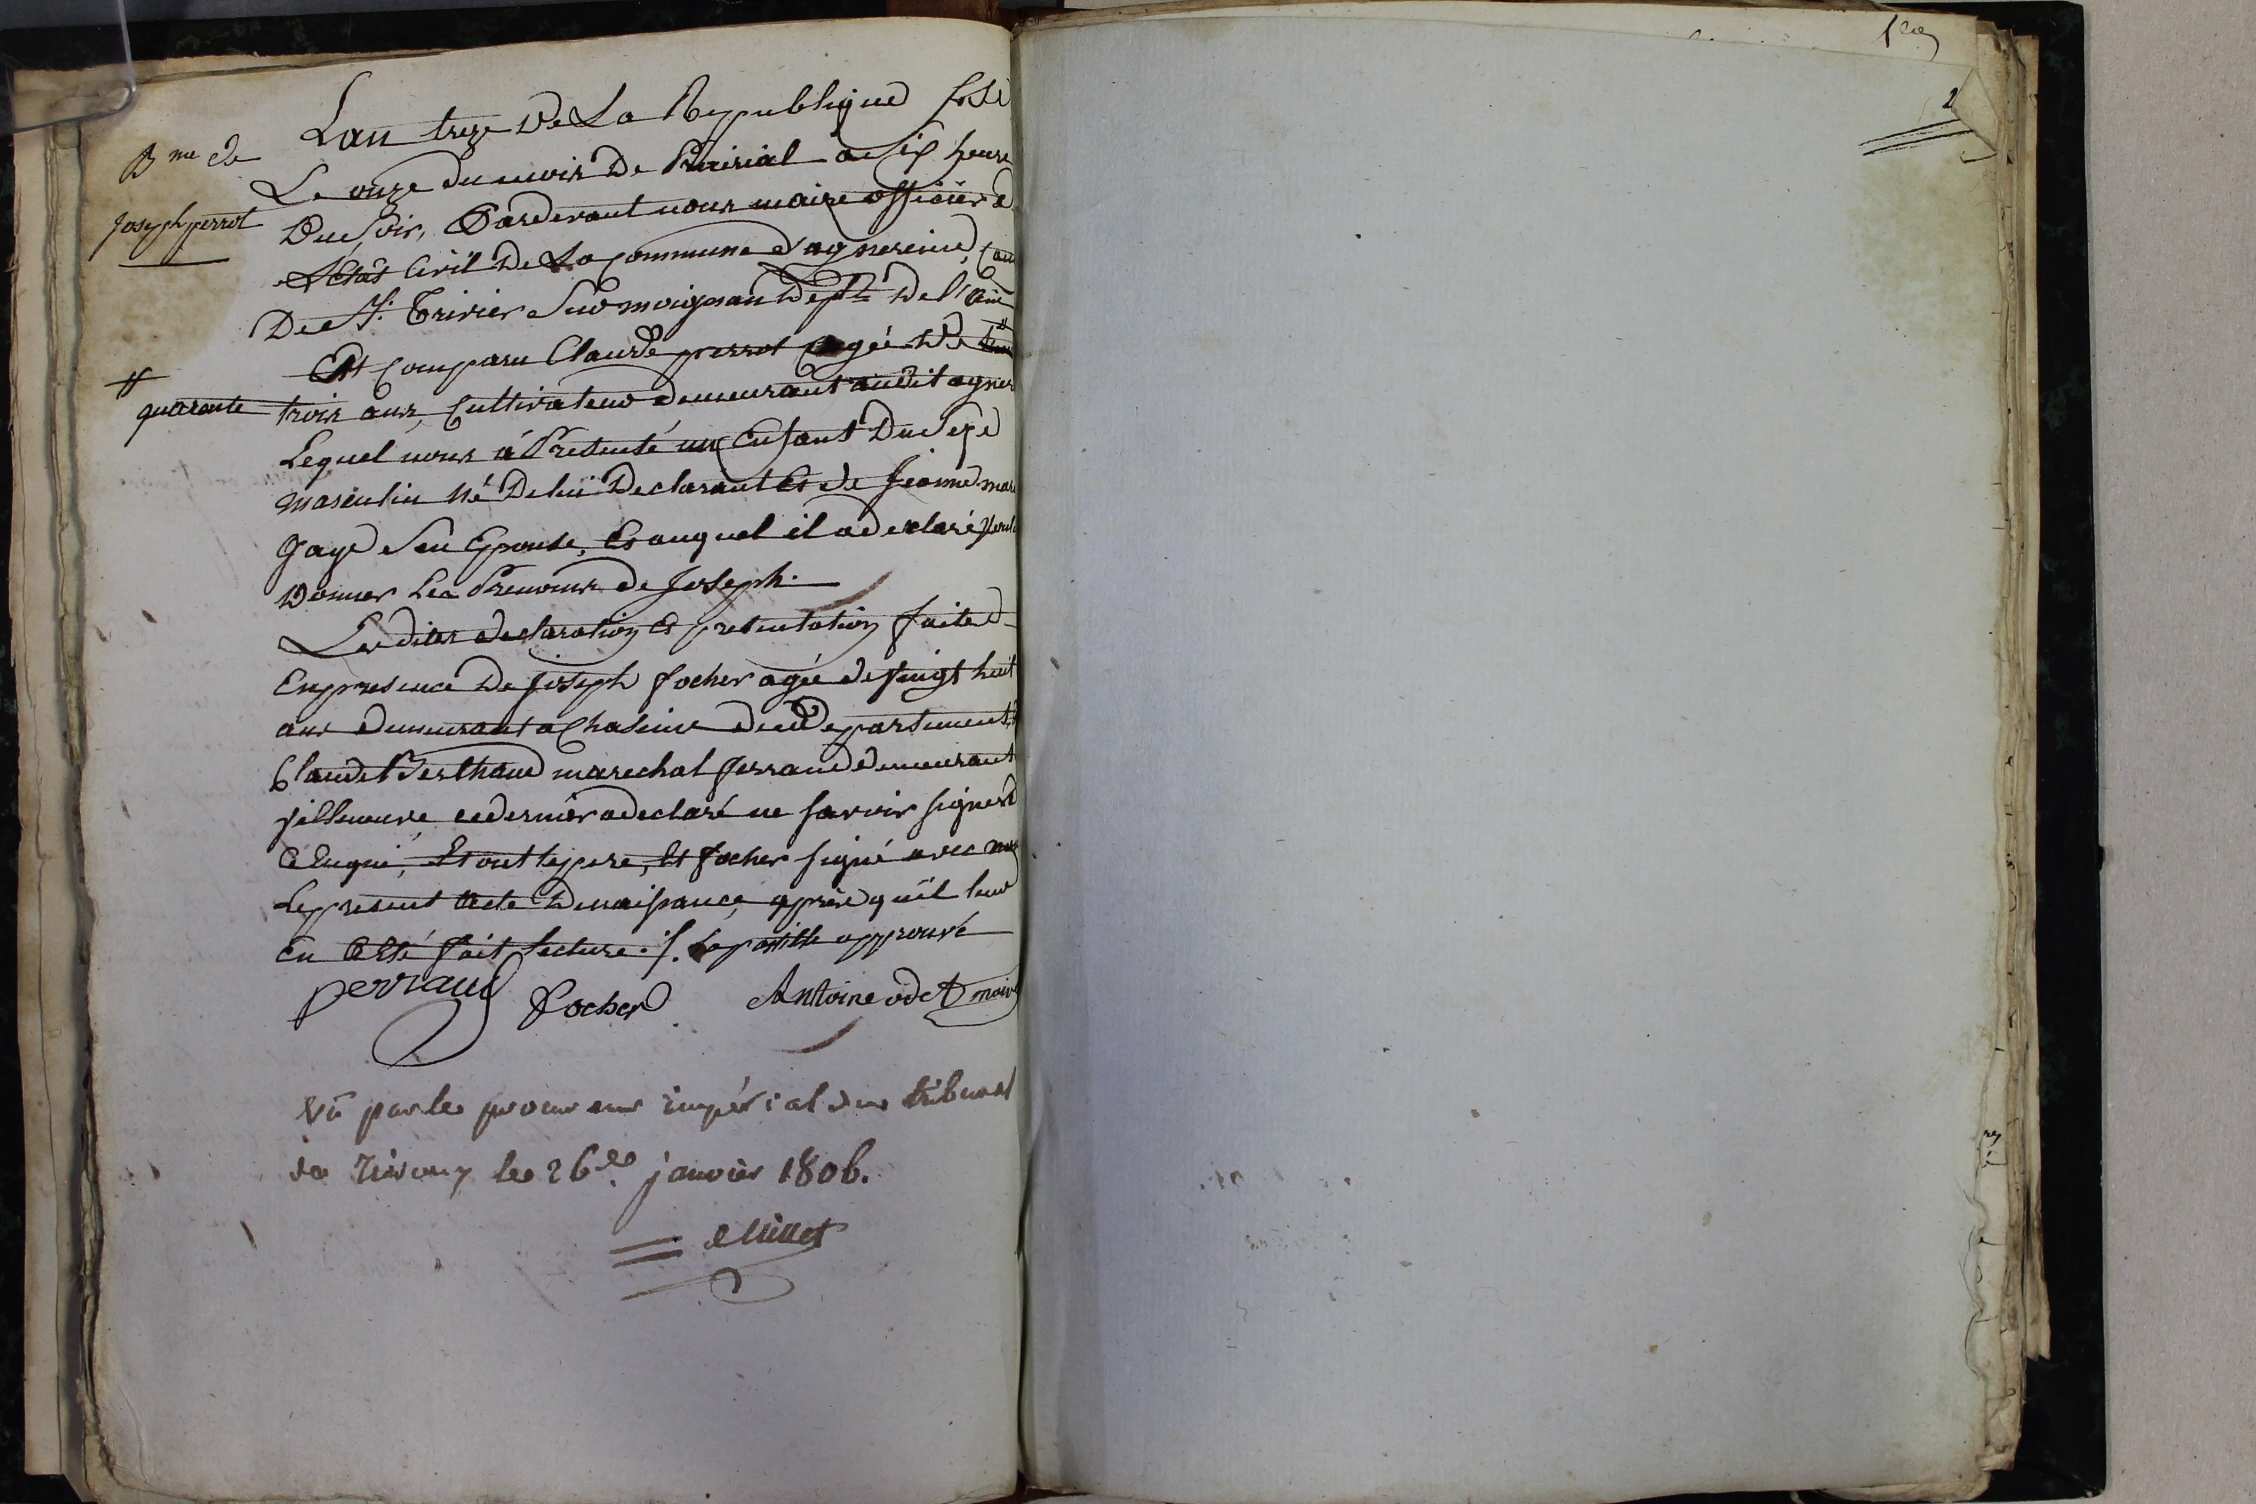 B.me de
Joseph perrot
Lan treze De La Republique
Le onze du mois De Prairial a Six heure
Du Soir, Pardevant nous maire officier d
L'Etat Civil De La Commune d'agnereind, Can
De St. Trivier Sur moignan Depte. De l'Ain
Est Comparu Claude perrot agé De
quarante
trois ans, Cultivateur demeurant audit agner
Lequel nous á Presenté un Enfant Du Sexe
masculin Né De lui Declarant Et de Jeanne marie
Gaye Son Epouse, Et auquel il a declaré vouloir
Donner Les Prenoms de Joseph.
Les dites declaration Et presentation faite
En presence De Joseph focher agée de Vingt huit
ans demeurant a Chaleins du departement
Claude Berthaud marechal ferrand demeurant
villeneuve ce dernier a declaré ne savoir signer d
Ce Enqui, Et ont le pere, Et focher signé avec nous
Le present acte De naissance, après quil leur
En a Eté fait Lecture ./. La postille approuvé
perraud
focher
Antoine odet maire
Vû par le procureur impérial du tribunal
de Trévoux le 26 janvier 1806.
Millet
2